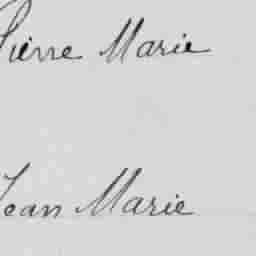 Pierre Marie
Jean Marie